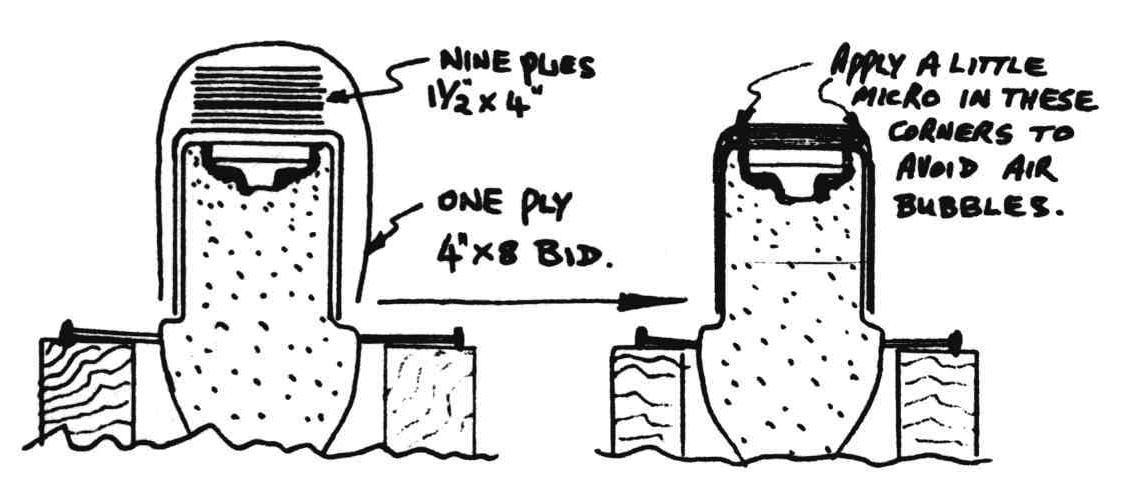 NINE PLIES
1½" x 4"
ONE PLY
4" x 8 BID.
APPLY A LITTLE
MICRO IN THESE
CORNERS TO
AVOID AIR
BUBBLES.